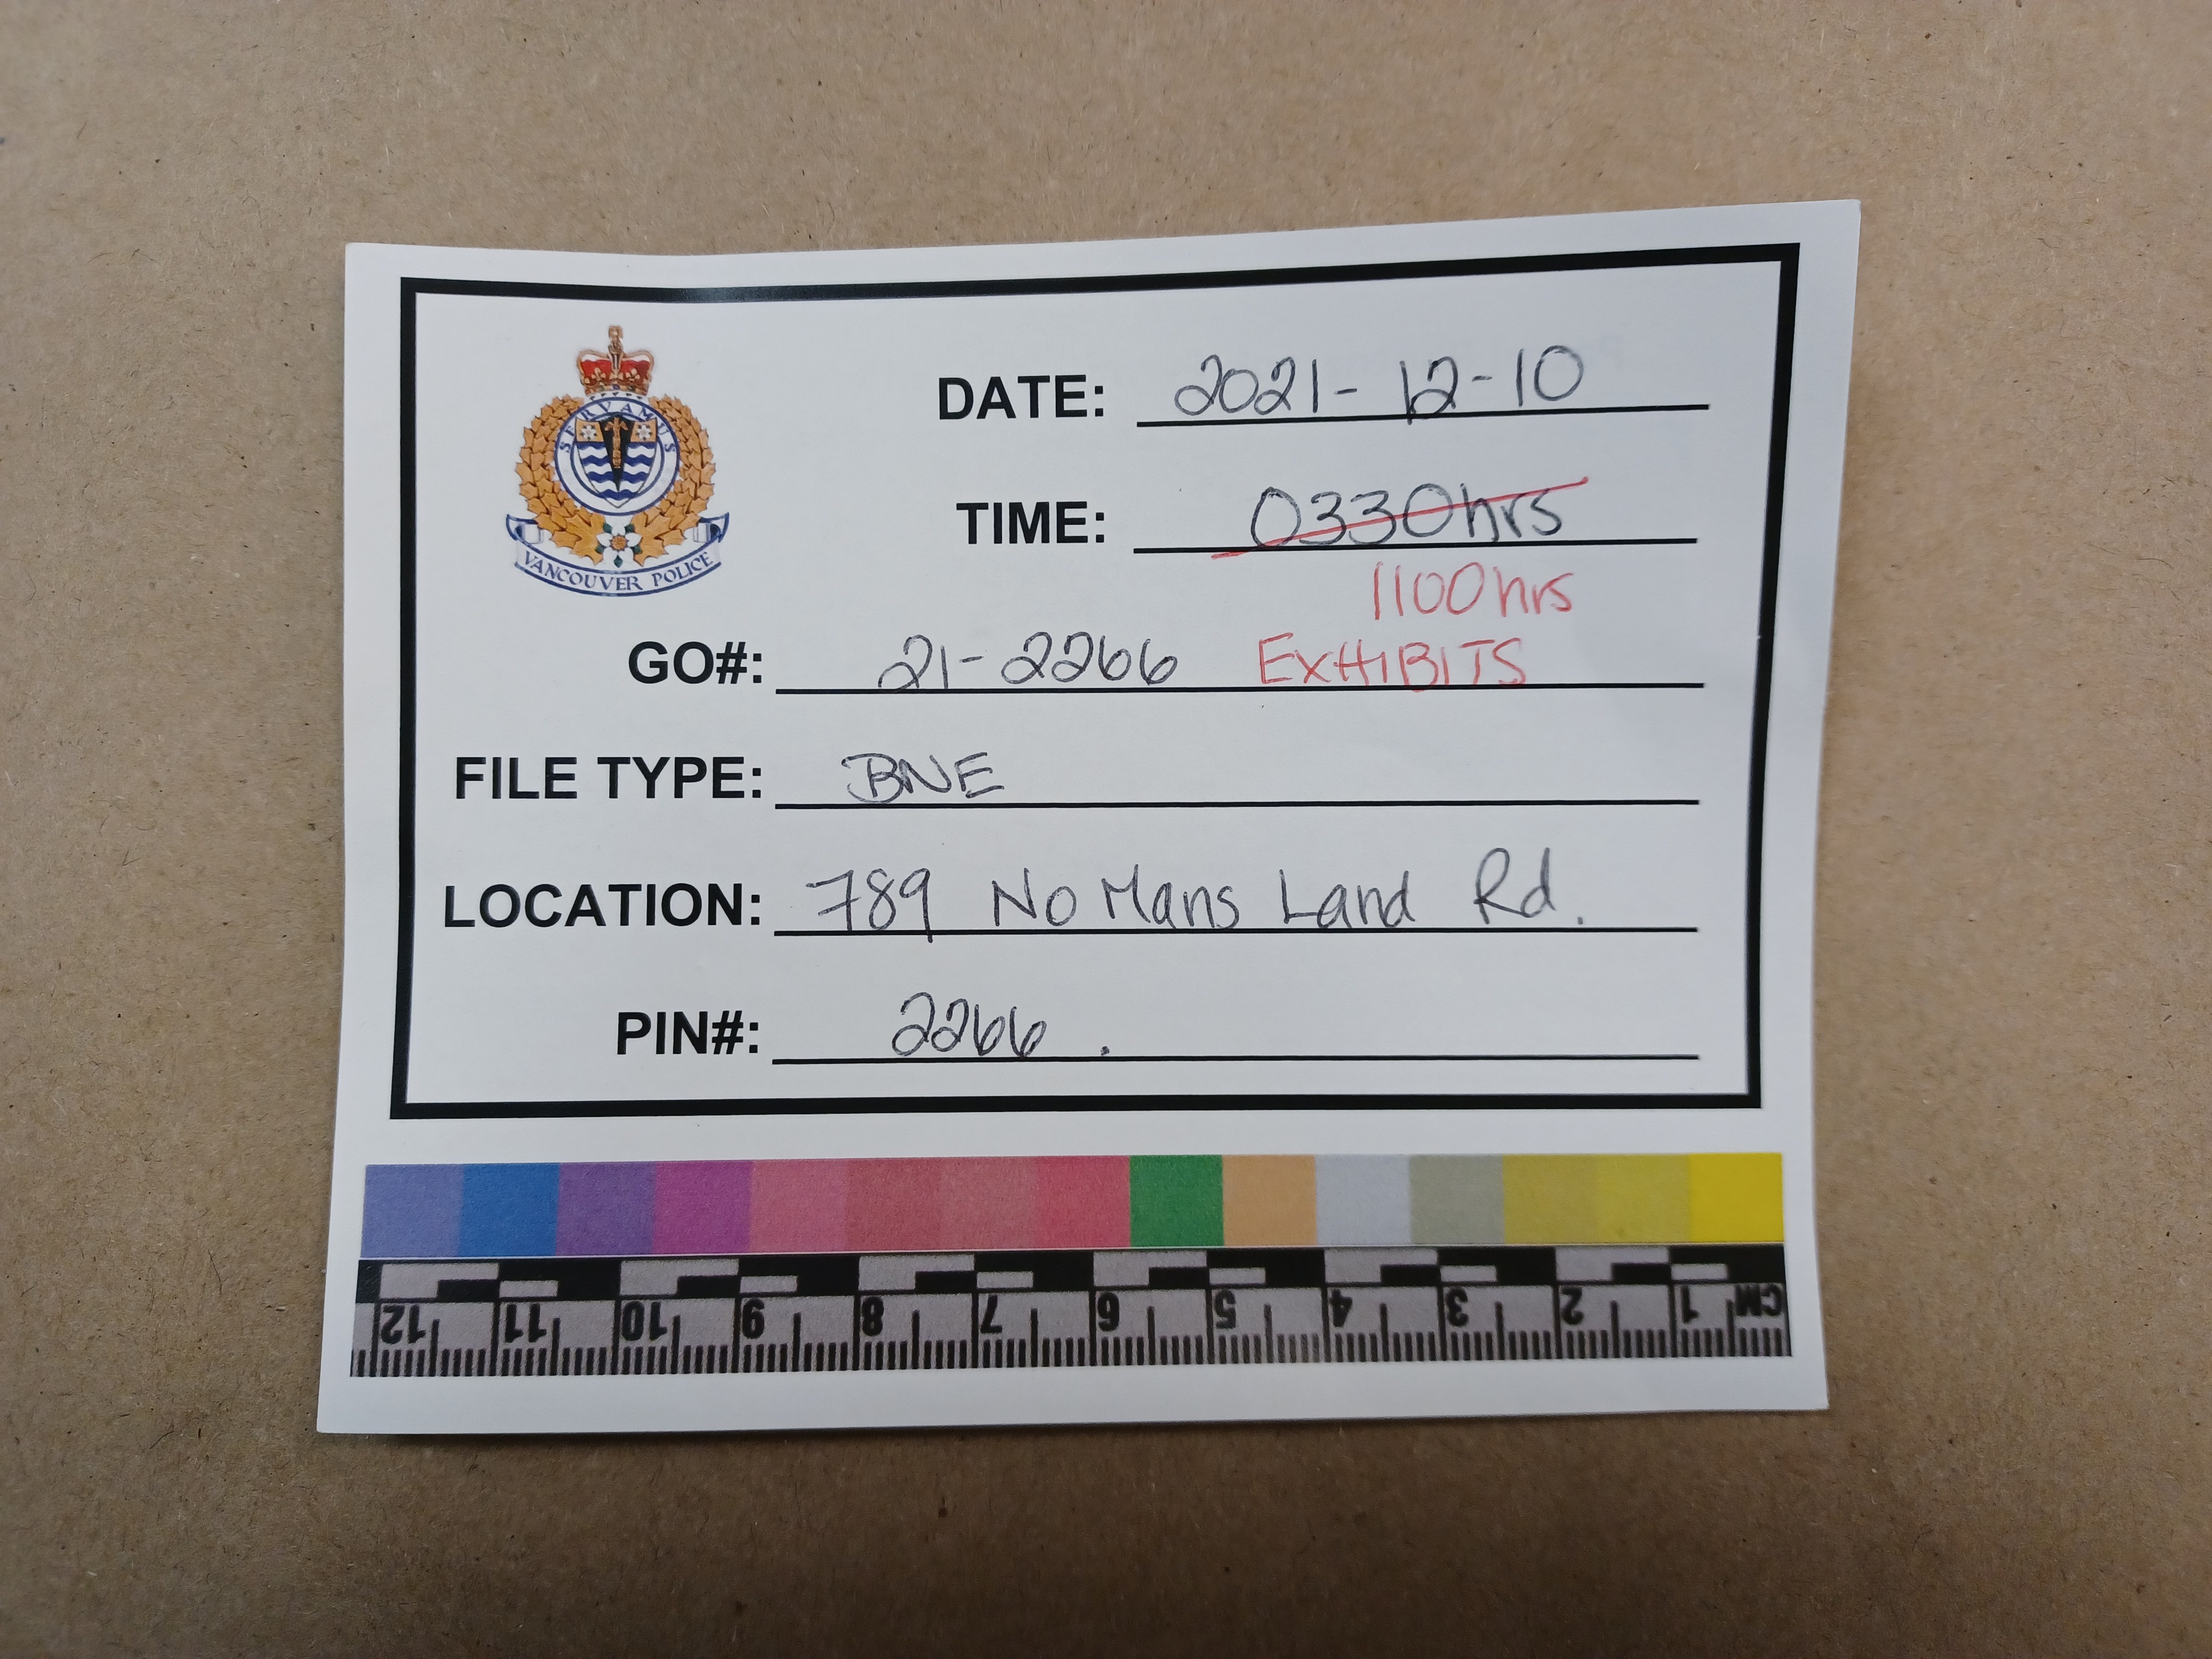 SERVAMUS
VANCOUVER POLICE
DATE: 2021-12-10
TIME: 0330hrs
1100hrs
GO#: 21-2266 EXHIBITS
FILE TYPE: BNE
LOCATION: 789 No Mans Land Rd.
PIN#: 2266.
12 11 10 9 8 7 6 5 4 3 2 1 CM